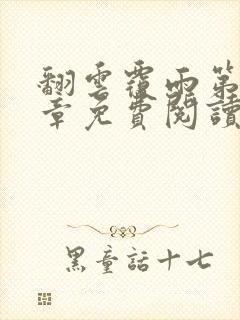 翻雲覆雨第
章免費閱讀
黑童話十七